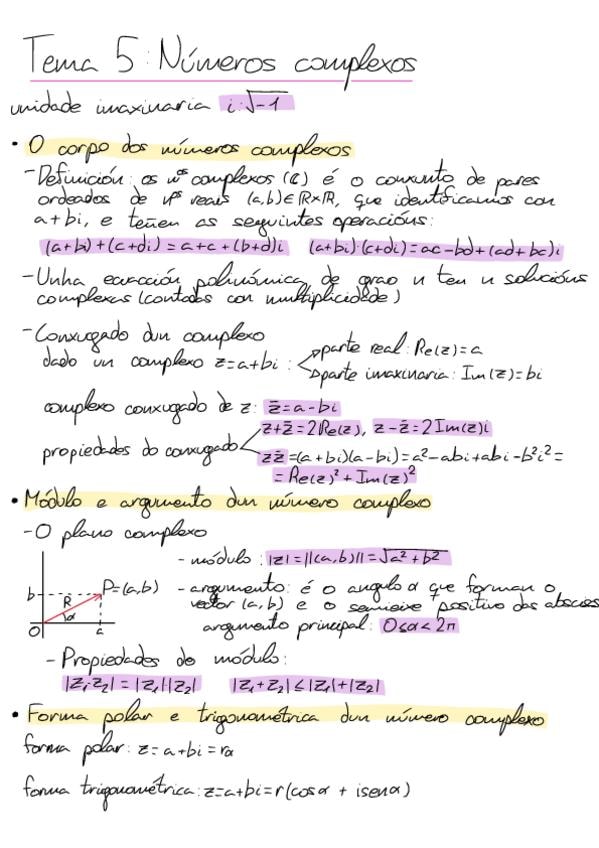 Tema 5: Números complexos
unidade imaxinaria i:√-1
• O corpo dos números complexos
- Definición: os nºs complexos (ℂ) é o conxunto de pares
ordeados de nºs reais (a,b)∈ℝxℝ, que identificamos con
a+bi, e teñen as seguintes operacións:
(a+bi)+(c+di)=a+c+(b+d)i (a+bi)·(c+di)=ac-bd+(ad+bc)i
- Unha ecuación polinómica de grao n ten n solucións
complexas (contadas con multiplicidade)
- Conxugado dun complexo
dado un complexo z=a+bi: parte real: Re(z)=a
parte imaxinaria: Im(z)=bi
complexo conxugado de z: z̄=a-bi
propiedades do conxugado z+z̄=2Re(z), z-z̄=2Im(z)i
zz̄=(a+bi)(a-bi)=a²-abi+abi-b²i²=
=Re(z)²+Im(z)²
• Módulo e argumento dun número complexo
- O plano complexo
- módulo: |z|=||(a,b)||=√a²+b²
b R α P=(a,b)
O a
- argumento: é o angulo α que forman o
vector (a,b) e o semieixe positivo das abscisas
argumento principal: 0≤α<2π
- Propiedades do módulo:
|z₁·z₂|=|z₁||z₂| |z₁+z₂|≤|z₁|+|z₂|
• Forma polar e trigonométrica dun número complexo
forma polar: z=a+bi=rα
forma trigonométrica: z=a+bi=r(cosα + isenα)